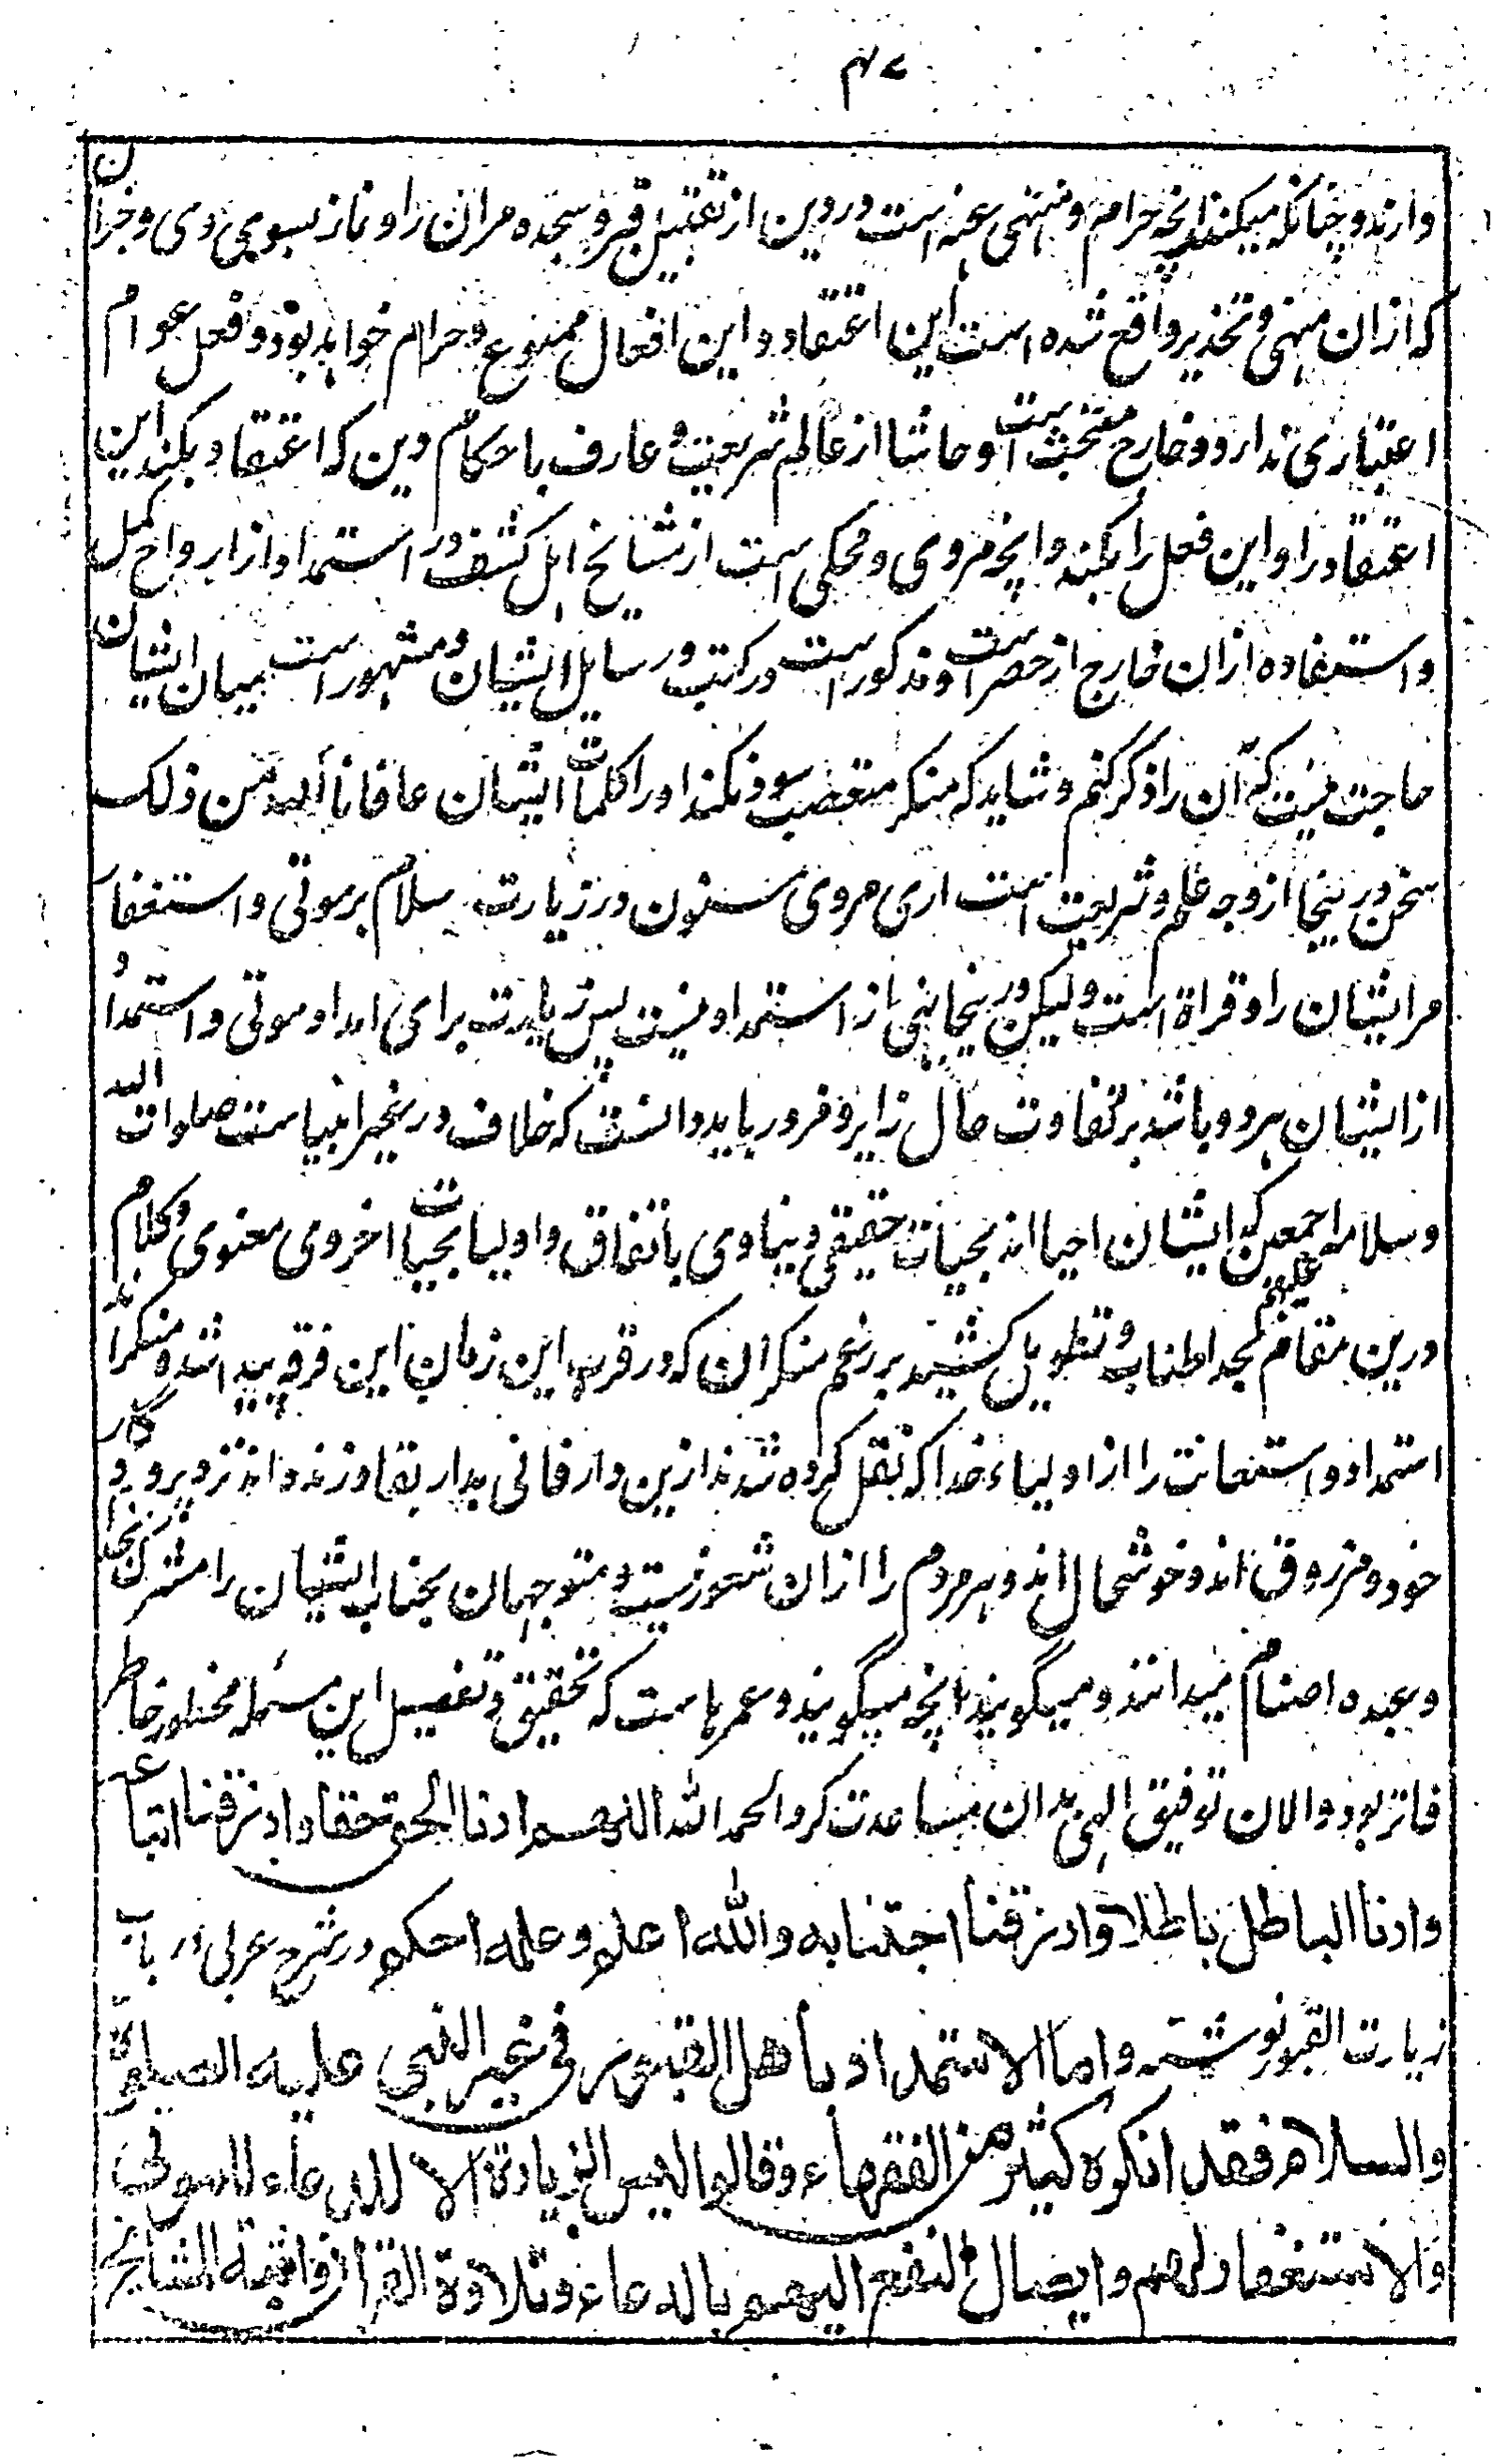 ۴۷
دارند و چنانکه میکنند آنچه حرام و منهی عنه است در دین از تقبیل قبر و سجده مر آن را و نماز بسوی وی و جز آن
که از ان منهی و تحذیر واقع شده است این اعتقاد و این افعال ممنوع و حرام خواهد بود و فعل عوام
اعتباری ندارد و خارج مبحث است و حاشا از عالم شریعت و عارف باحکام دین که اعتقاد بکند این
اعتقاد را و این فعل را بکند و آنچه مروی و محکی است از مشایخ اهل کشف در استمداد از ارواح کمل
و استفاده ازان خارج از حصر است و مذکور است در کتب و رسایل ایشان و مشهور است میان ایشان
حاجت نیست که آن را ذکر کنم و شاید که منکر متعصب سود نکند اورا کلمات ایشان عافانا الله من ذلک
سخن درینجا از وجه علم و شریعت است اری مروی مسنون در زیارت سلام بر موتی و استغفار
مر ایشان را و قراة است ولیکن درینجا نهی از استمداد نیست پس زیارت برای امداد موتی و استمداد
از ایشان هر دو باشد بر تفاوت حال زایر و مزور باید دانست که خلاف در غیر انبیاست صلوات الله
و سلامه علیهم اجمعین که ایشان احیا اند بحیات حقیقی دنیاوی باتفاق و اولیا بحیات اخروی معنوی و کلام
درین مقام بحد اطناب و تطویل کشید بر رغم منکران که در قرب این زمان این فرقه پیدا شده منکر اند
استمداد و استعانت را از اولیاء خدا که نقل کرده شدند ازین دار فانی بدار بقا و زنده اند نزد پروردگار
خود و مرزوق اند و خوشحال اند و مر مردم را ازان شعور نیست و متوجهان بجناب ایشان را مشرک بخدا
و عبده اصنام میدانند و میگویند آنچه میگویند و عمرهاست که تحقیق و تفصیل این مسئله مخطور خاطر
فاتر بود و الان توفیق الهی بدان مساعدت کرد الحمد لله اللهم ارنا الحق حقا وارزقنا اتباعه
وارنا الباطل باطلا وارزقنا اجتنابه والله اعلم وعلمه احکم در شرح عربی در باب
زیارت القبور نوشته واما الاستمداد باهل القبور فی غیر النبی علیه الصلوة
والسلام فقد انکره کثیر من الفقهاء وقالوا لیس الزیارة الا للدعاء للموتی
والاستغفار لهم وایصال النفع الیهم بالدعاء وتلاوة القران واثبته المشایخ